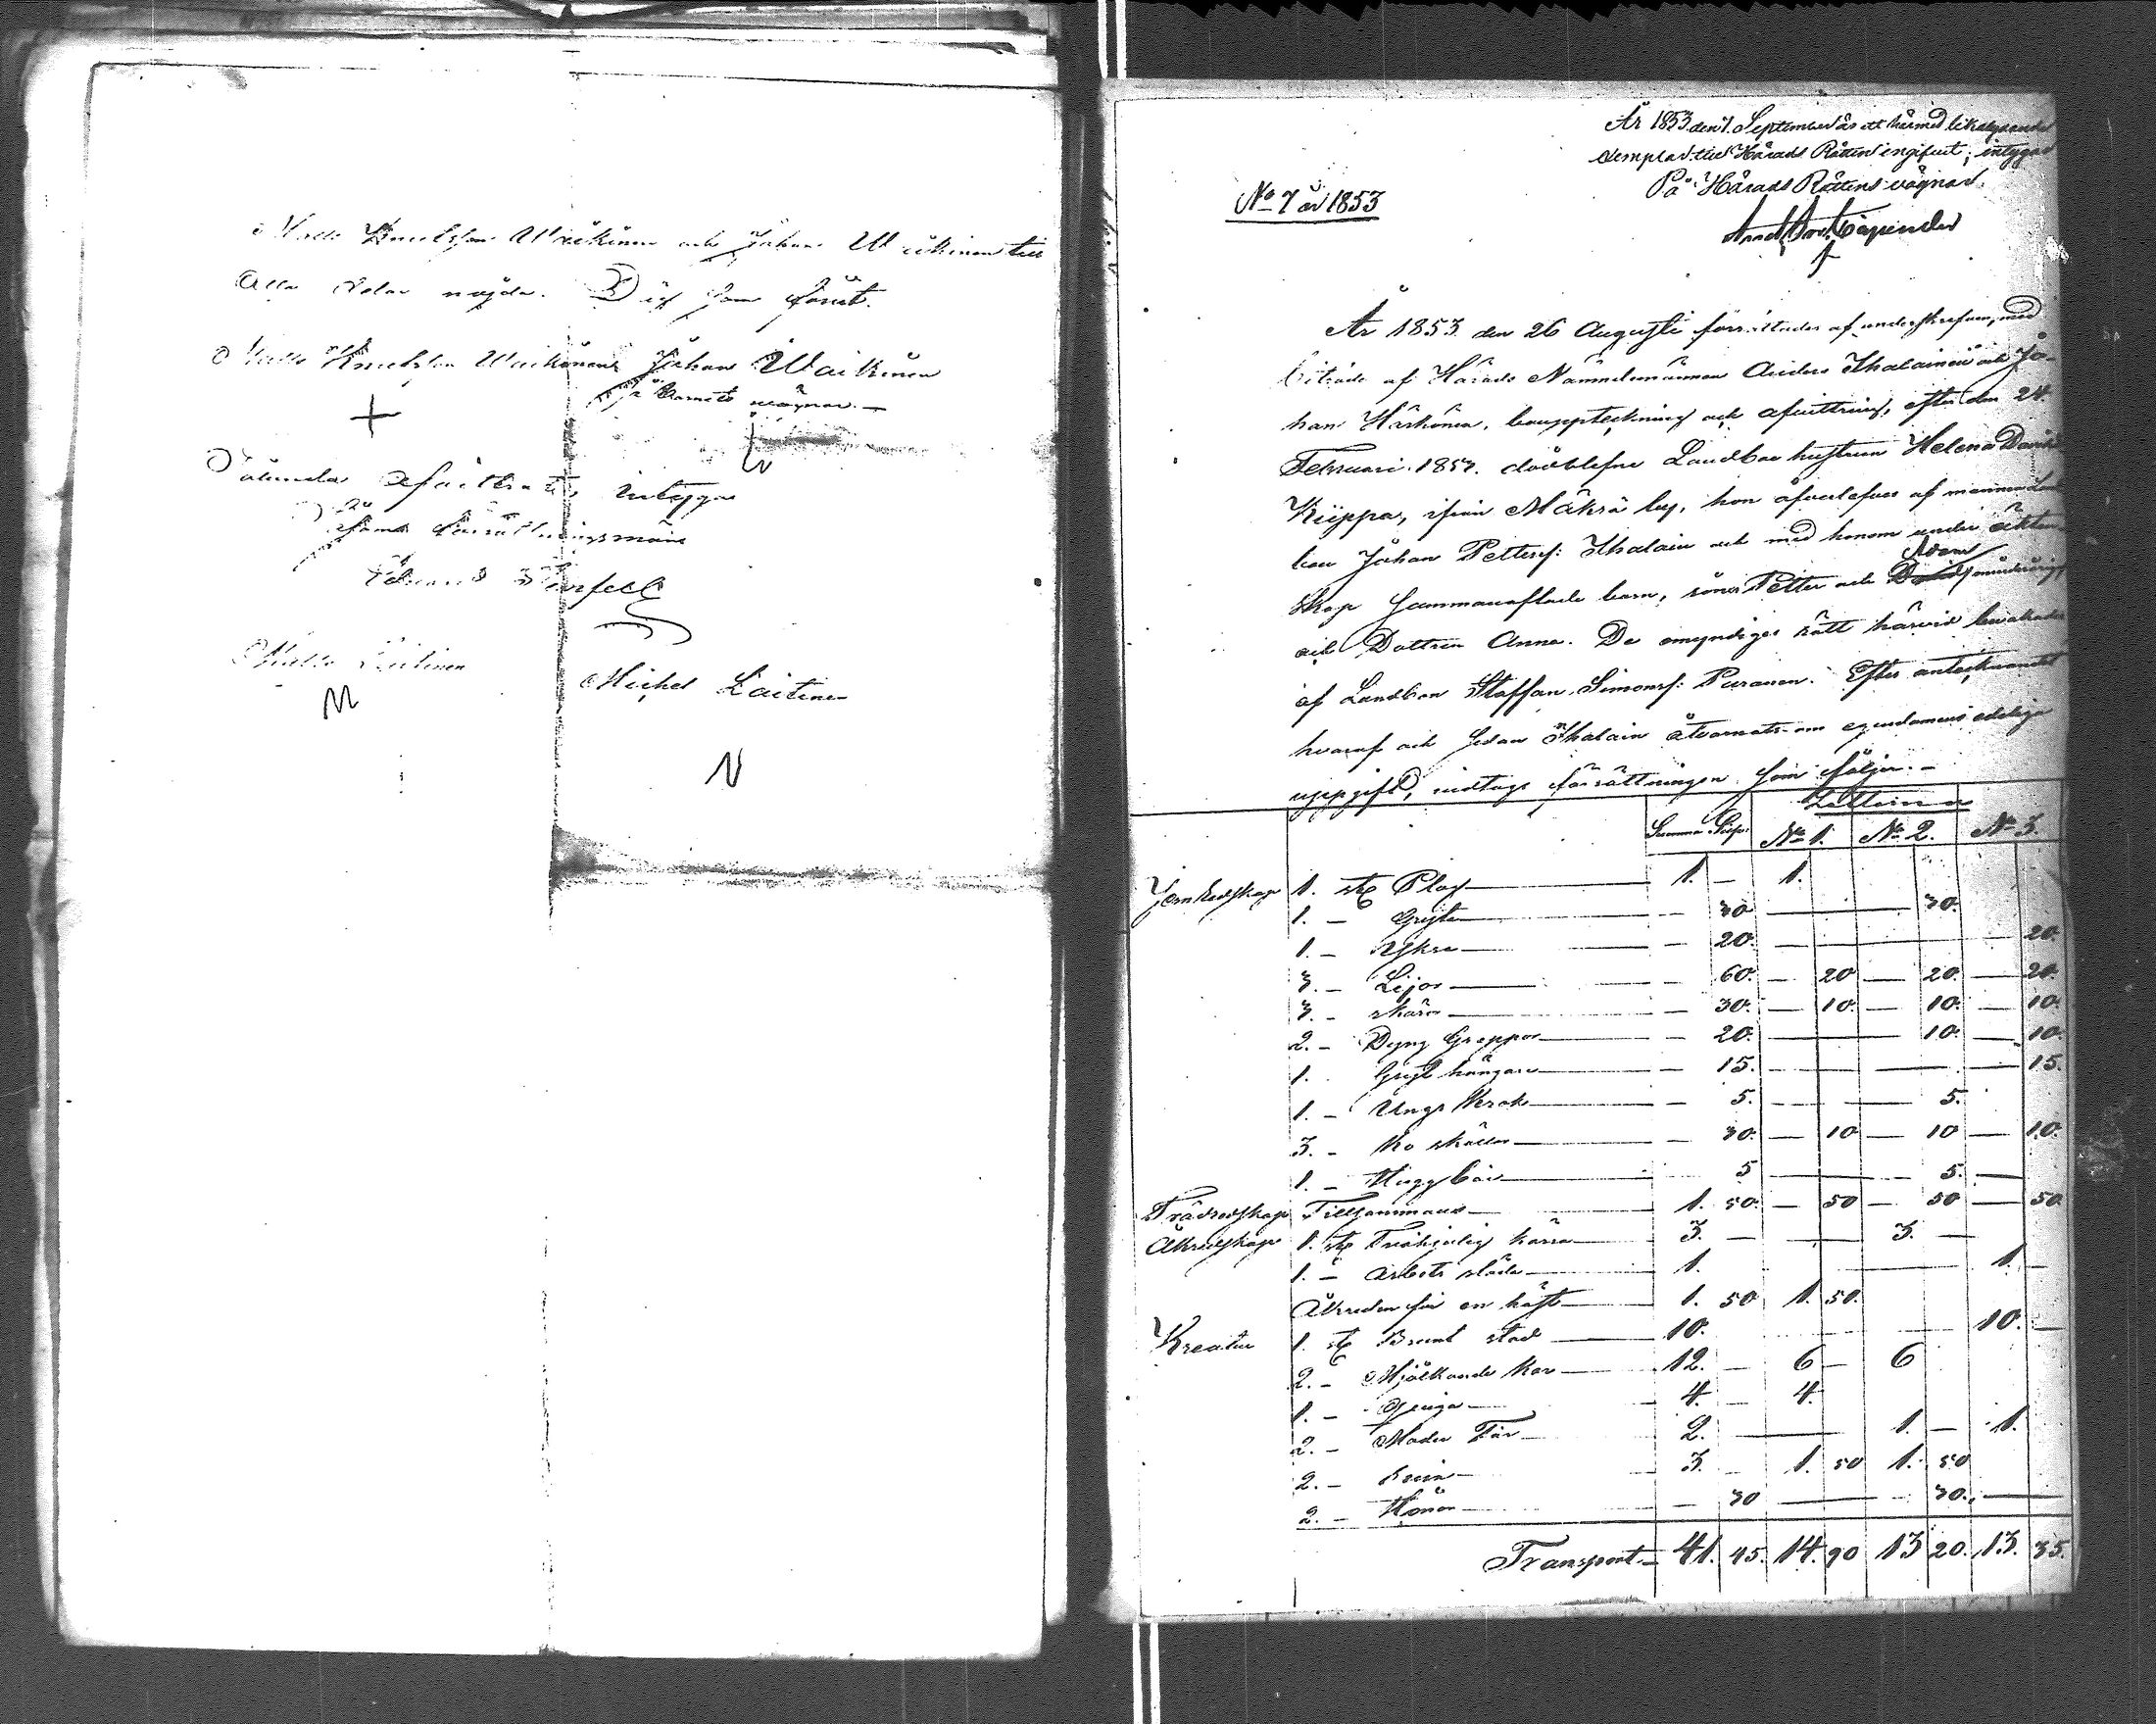 Matts Knutsson Waikönen och Johan Waikonen till
Alla delar nöjda. Dag som förut.
Matts Knutsson Waikönen Johan Waikönen
På Barnets wägnar. —
Sålunda afvittrat, intygar
Samma Förrättningsmän
Michel Laitinen
År 1853 den 7. September är ett härmed likalydande
exemplar till Härads Rätten ingifvit; intygar
På Härads Rättens vägnar.
No 7 år 1853
År 1853 den 26 Augusti förrättades af underskrefven, med
biträde af Härads Nämndemännen Anders Ihalainen och Jo-
han Härkönen, bouppteckning och afvittring, efter den 24.
Februari 1853. dödblefne Landbohustrun Helena Davids
Kiippa, ifrån Mäkrä by, hon öfverlefves af mannen Land-
bon Johan Petterss: Ihalain och med honom under äkten-
Adam
skap sammanaflade barn, söner Petter och omyndige
och Dottren Anna. De omyndiges rätt härvid bevakades
af Landbon Staffan Simonss: Puranen. Efter antecknandet
hvaraf och sedan Ihalain åtvarnats om egendomens edeliga
uppgift, vidtogs förrättningen som följer. —
Lotterna
Summa Silfv: No 1. No 2. No 3.
Jernredskap 1. st. Plog — 1. — 1.
1. — Gryta — 30 — 30.
1. — — 20. — 20.
3. — Lijor — 60. — 20 — 20. — 20.
3. — skäror — 30. — 10. — 10. — 10.
2. — Dyng Greppor — 20. — 10. — 10.
1. Gryt hängare — 15. — 15.
1. — Ungs Krok — 5. — 5.
3. — Ko skällor — 30. — 10 — 10 — 10.
1. — — 5 — 5. —
Trädredskap Tillsammans — 1. 50. — 50 — 50 — 50.
Åkredskap 1. st. Tvåhjulig kärra — 3. — 3. —
1. — Arbets släde — 1. — 1. —
Åkreden för en häst — 1. 50 1. 50.
Kreatur 1. st. Brunt stod — 10. — 10. —
2. — Mjölkande Kor — 12. — 6 — 6
1. — Qviga — 4. — 4.
2. — Moder Får — 2. — 1. — 1.
2. — Svin — 3. — 1. 50 1. 50
2. — Hönor — 30 — 30. —
Transport — 41. 45. 14. 90 13 20. 13. 35.